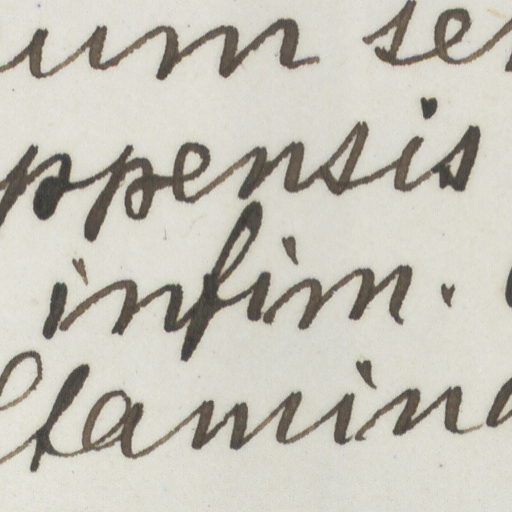 um se
ppensis
infim.
Stamin